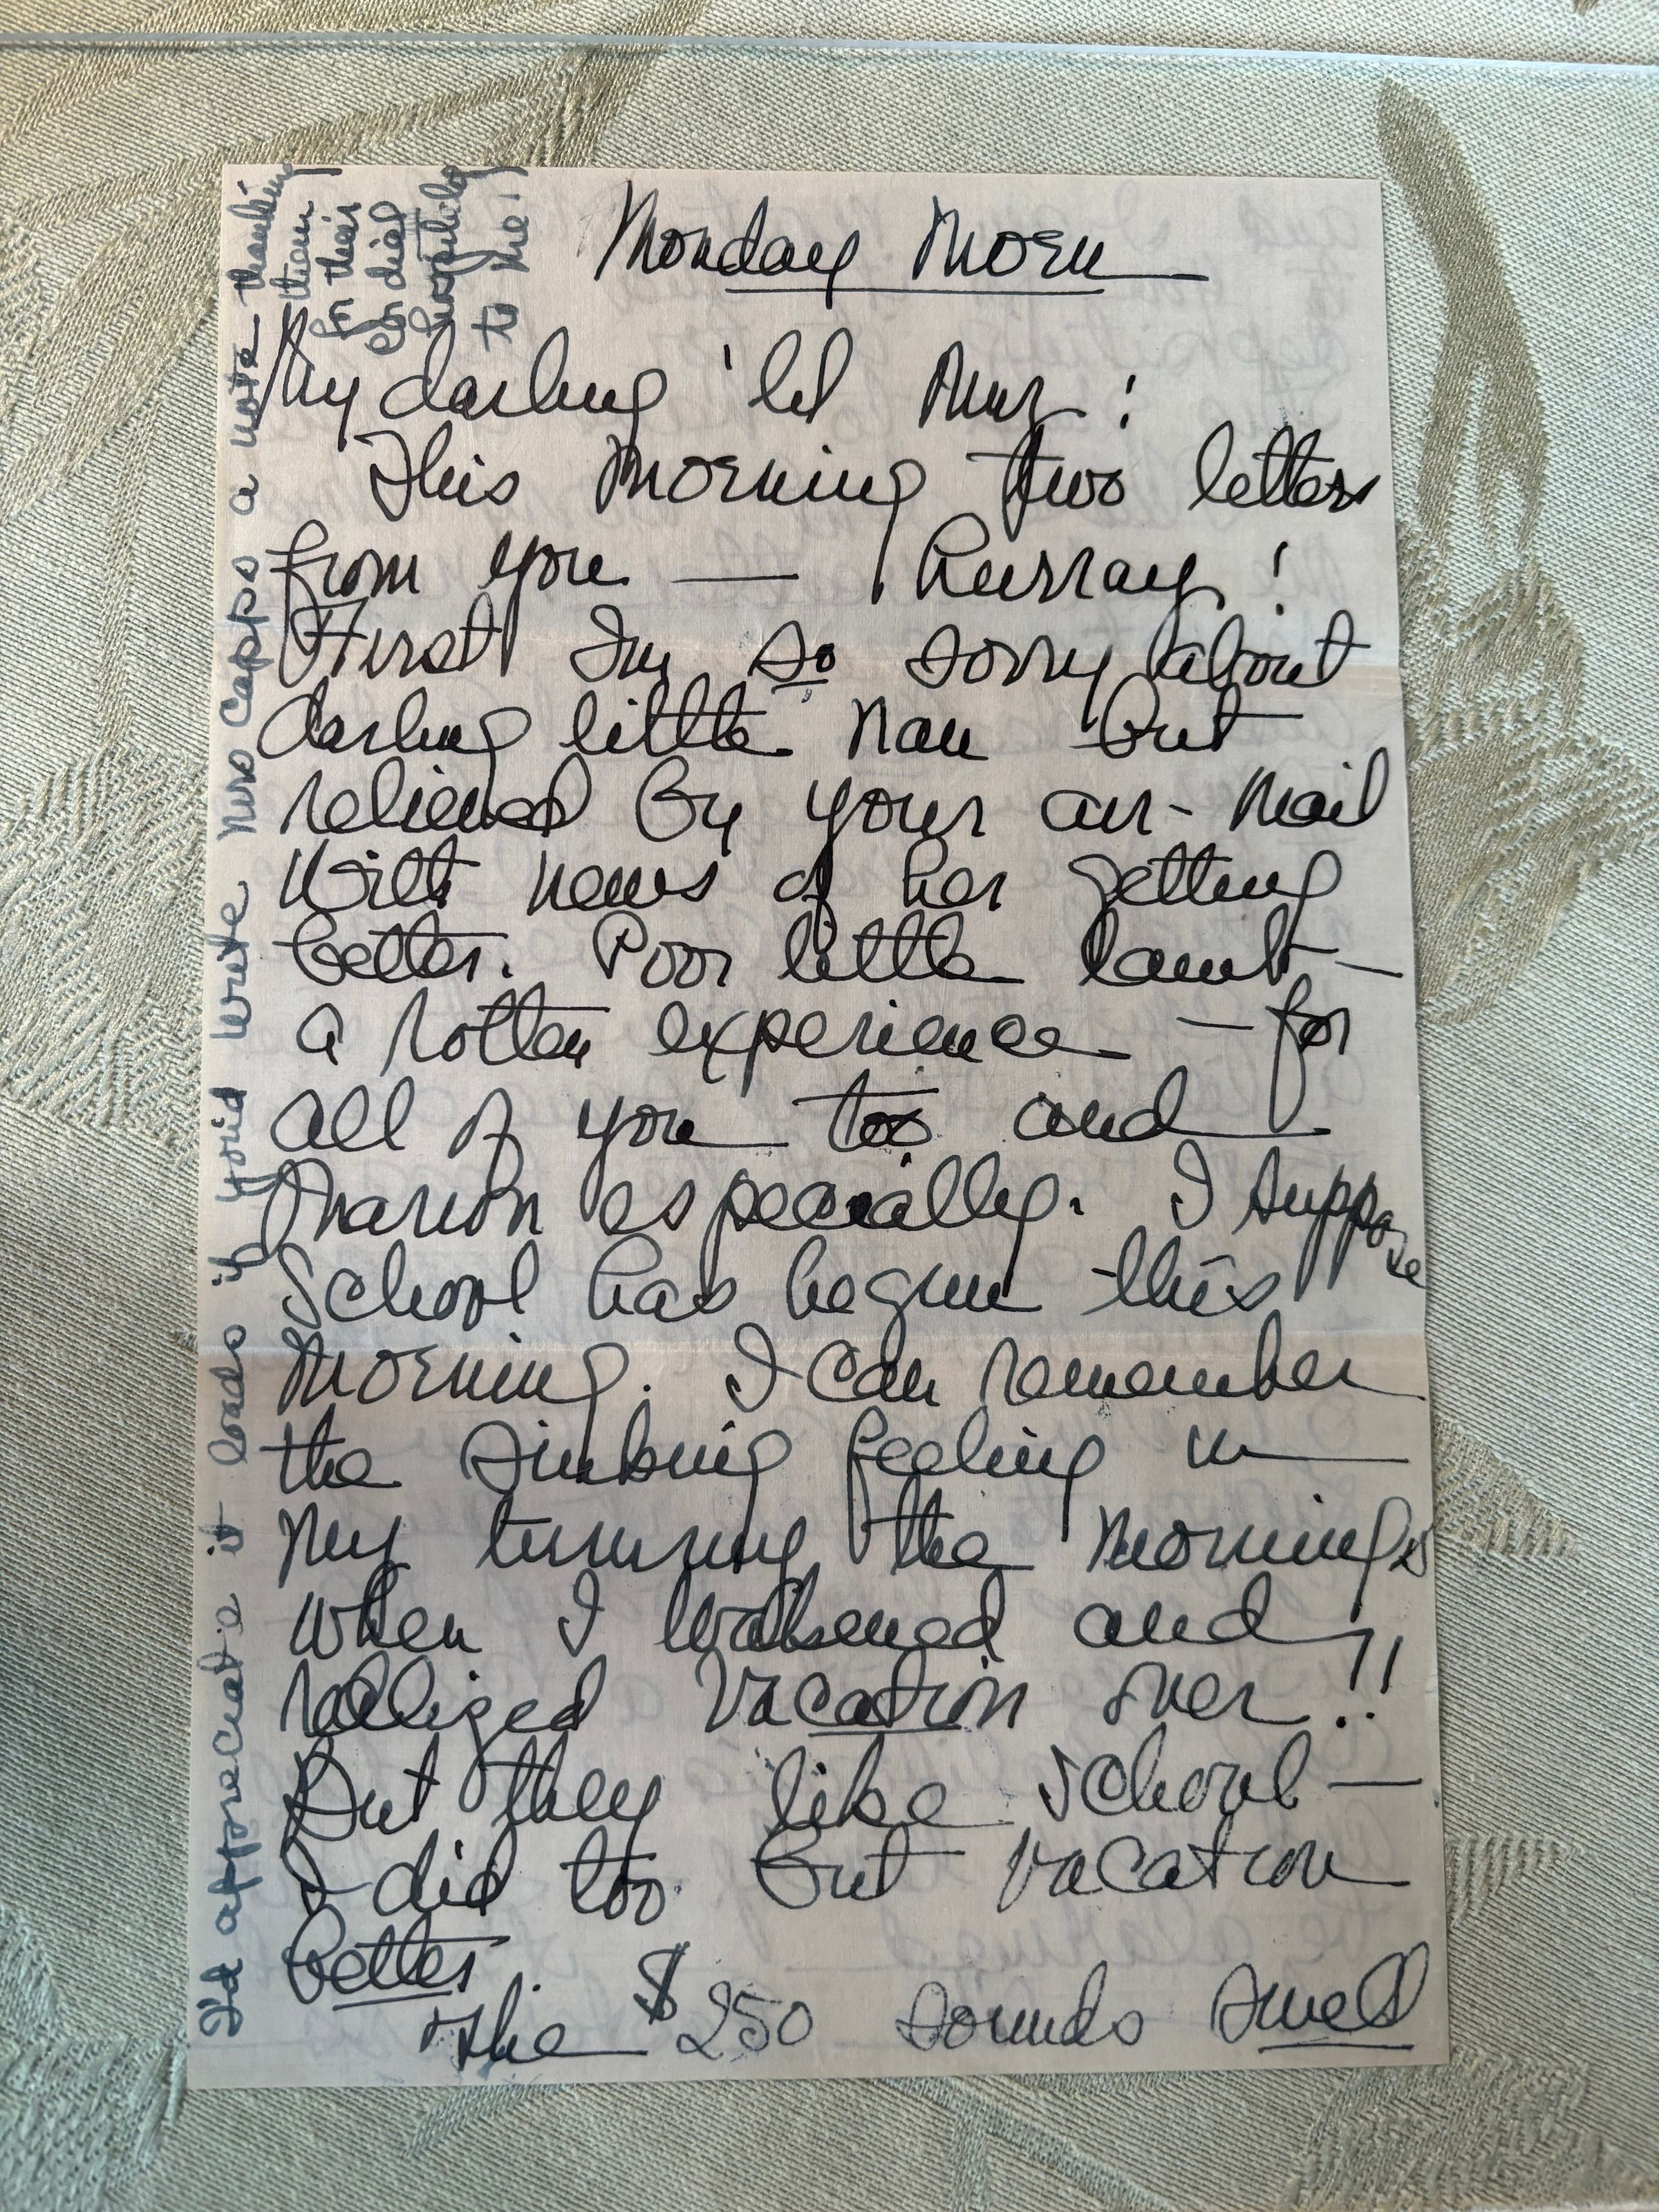 Monday Morn
My darling 'lil Muz!
This morning two letters
from you — hurray!
First I'm so sorry about
darling little Nan but
relieved by your air-mail
with news of her getting
better. Poor little lamb —
a rotten experience — for
all of you too and
Marion especially. I suppose
school has begun this
morning. I can remember
the sinking feeling in
my tummy the mornings
when I wakened and
realized vacation over!!
But they like school —
I did too but vacation
better.
The $250 sounds swell
I'd appreciate it loads if you'd write Mrs Capps a note thanking
them
for their
cordial
hospitality
to me!